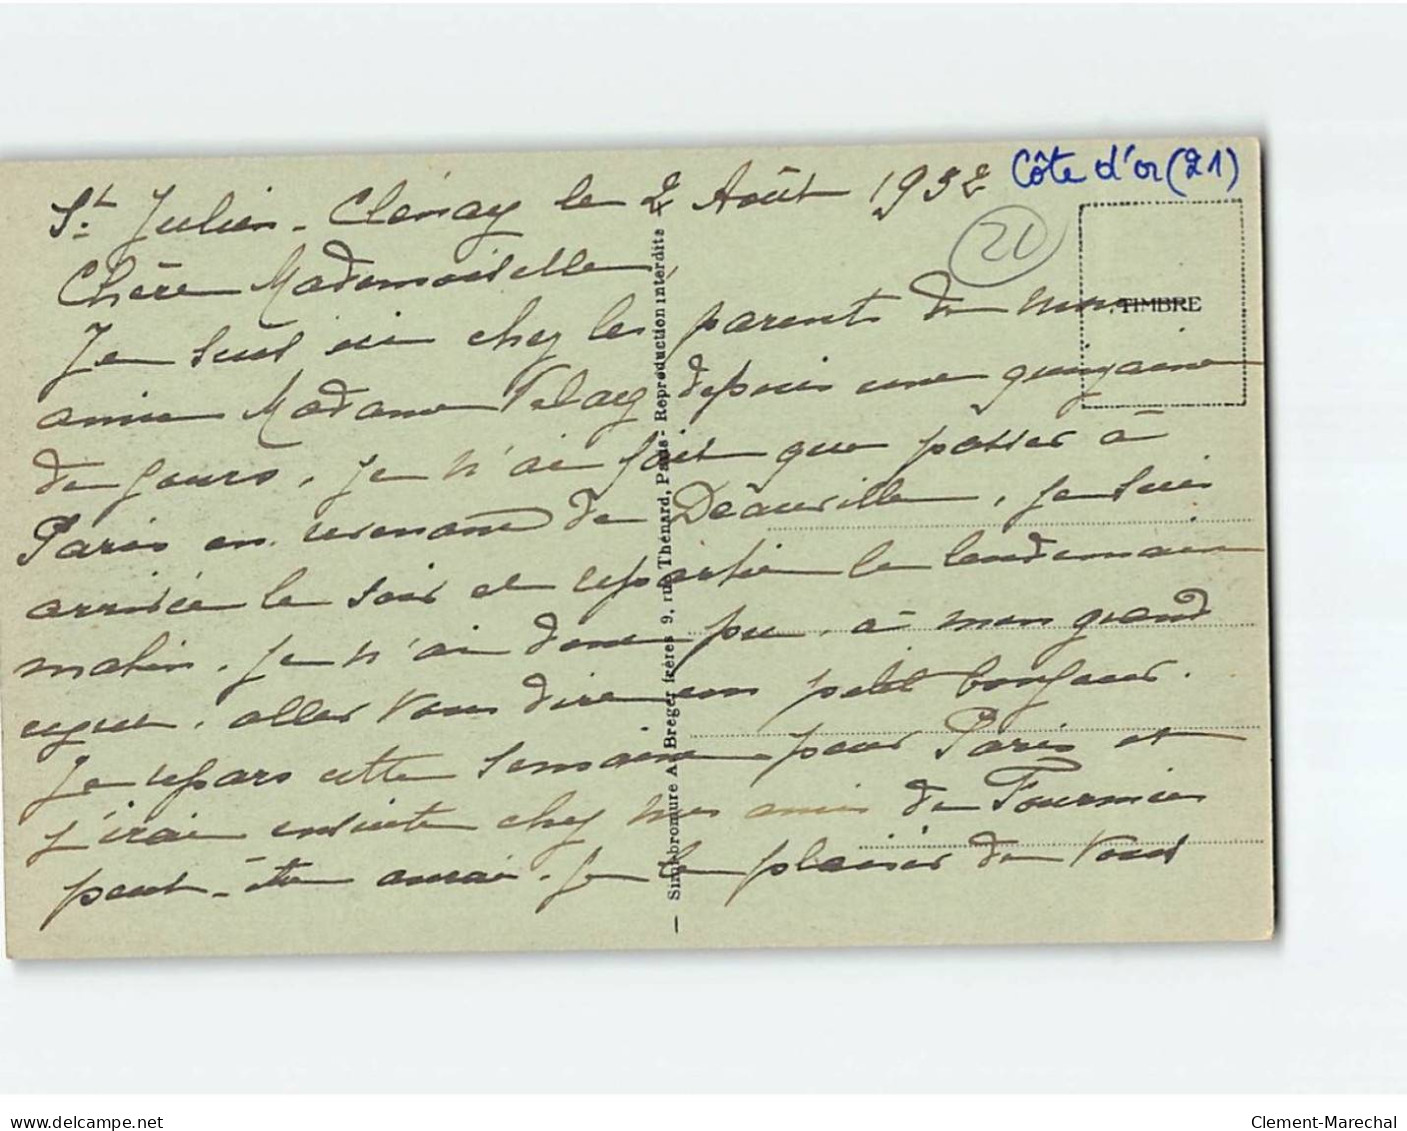 St Julien - Clénay le 2 Août 1932
Côte d'or (21)
21
TIMBRE
Chère Mademoiselle,
Je suis ici chez les parents de mon
amie Madame depuis une quinzaine
de jours. Je n'ai fait que passer à
Paris en revenant de Deauville, je suis
arrivée le soir et repartie le lendemain
matin. Je n'ai donc pu, à mon grand
regret, aller vous dire un petit bonjour.
Je repars cette semaine pour Paris et
j'irai ensuite chez mes amis de Fournier
peut-être aurai-je le plaisir de vous
— Simi-bromure A. Breger frères 9, rue Thénard, Paris - Reproduction interdite —
delcampe.net
Clement-Marechal